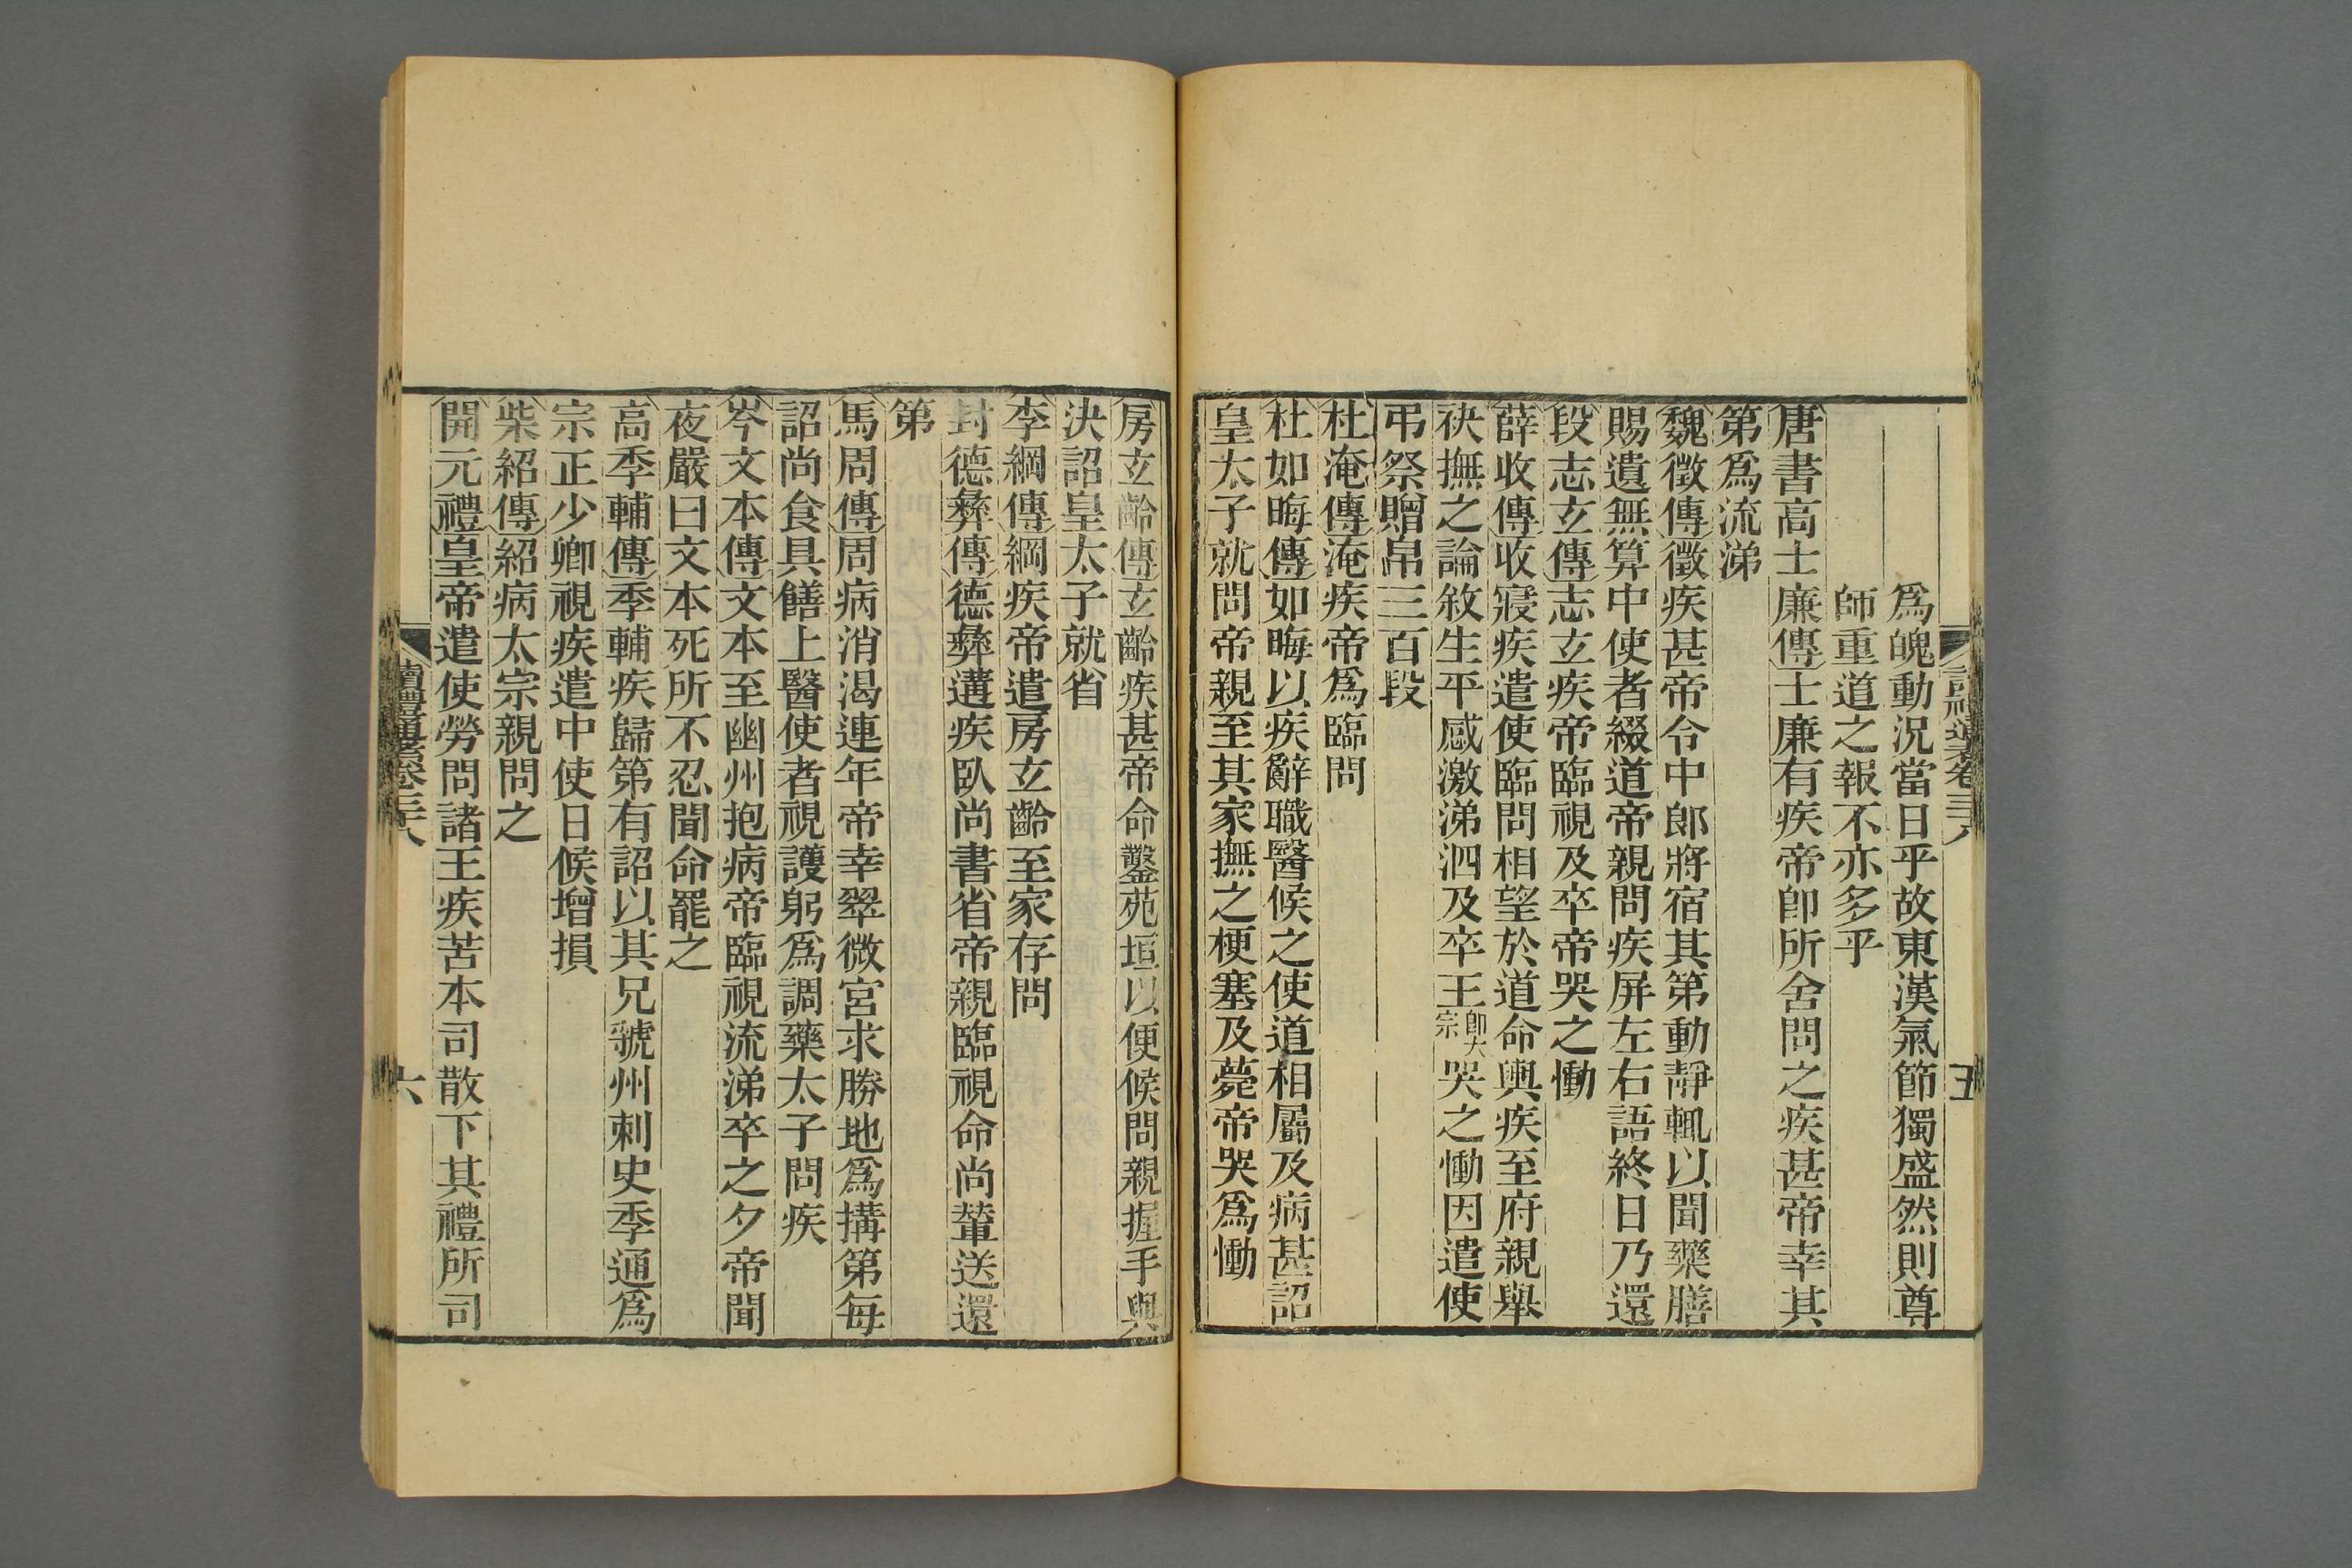 爲魄動況當日乎故東漢氣節獨盛然則尊
師重道之報不亦多乎
唐書高士廉傳士廉有疾帝卽所舍問之疾甚帝幸其
第爲流涕
魏徵傳徵疾甚帝令中郎將宿其第動靜輒以聞藥膳
賜遺無算中使者綴道帝親問疾屏左右語終日乃還
段志玄傳志玄疾帝臨視及卒帝哭之慟
薛收傳收寢疾遣使臨問相望於道命輿疾至府親舉
袂撫之論敘生平感激涕泗及卒王卽太宗哭之慟因遣使
弔祭贈帛三百段
杜淹傳淹疾帝爲臨問
杜如晦傳如晦以疾辭職醫候之使道相屬及病甚詔
皇太子就問帝親至其家撫之梗塞及薨帝哭爲慟
五
房玄齡傳玄齡疾甚帝命鑿苑垣以便候問親握手與
決詔皇太子就省
李綱傳綱疾帝遣房玄齡至家存問
封德彝傳德彝遘疾臥尚書省帝親臨視命尚輦送還
第
馬周傳周病消渴連年帝幸翠微宮求勝地爲搆第每
詔尚食具饍上醫使者視護躬爲調藥太子問疾
岑文本傳文本至幽州抱病帝臨視流涕卒之夕帝聞
夜嚴曰文本死所不忍聞命罷之
高季輔傳季輔疾歸第有詔以其兄虢州刺史季通爲
宗正少卿視疾遣中使日候增損
柴紹傳紹病太宗親問之
開元禮皇帝遣使勞問諸王疾苦本司散下其禮所司
讀禮通考卷三十八
六